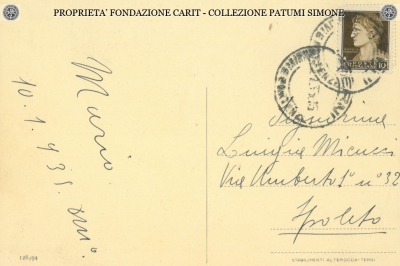 PROPRIETA' FONDAZIONE CARIT - COLLEZIONE PATUMI SIMONE
Mario
10.1.935.XIII°
Signorina
Luigia Micucci
Via Umberto I° n° 32
Spoleto
10
128594
STABILIMENTI ALTEROCCA-TERNI